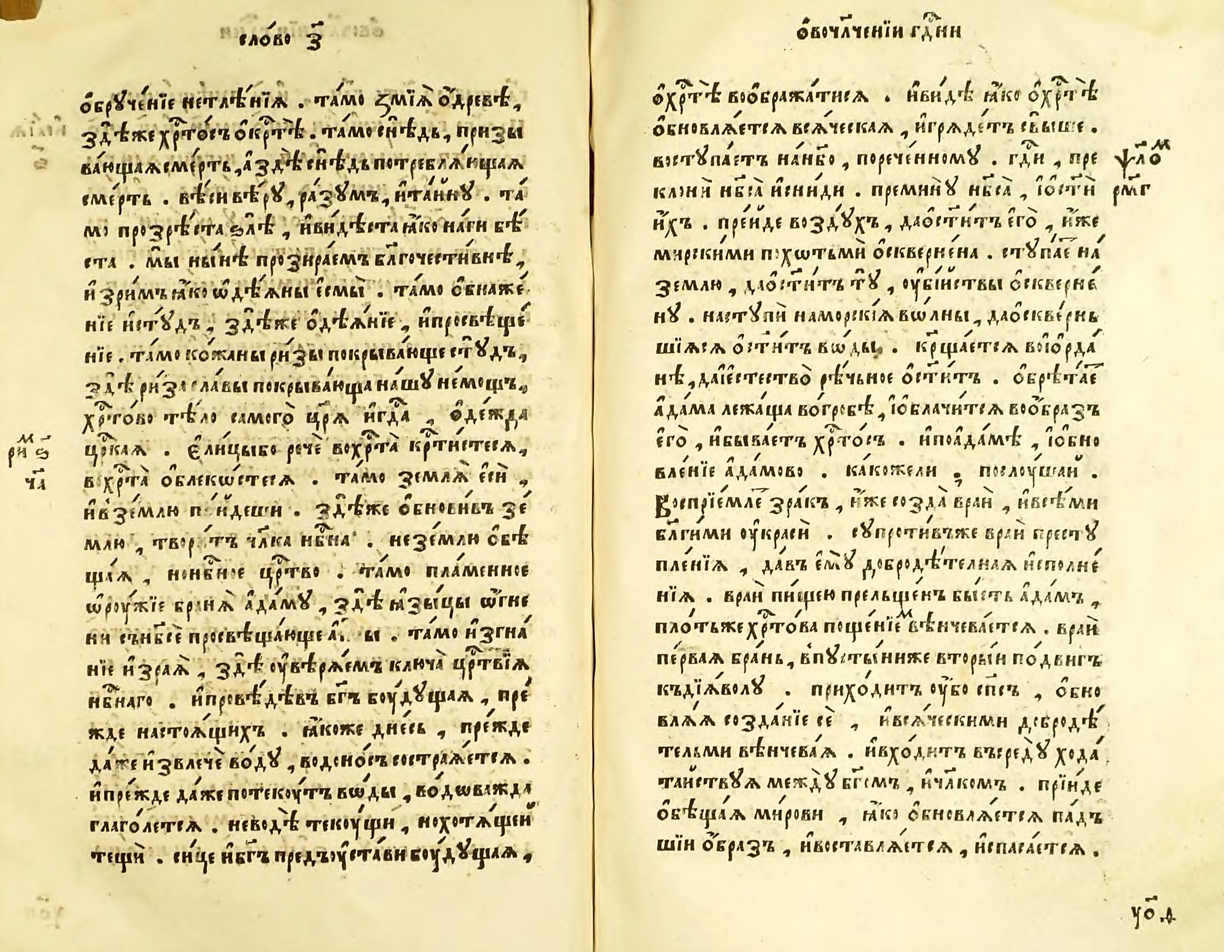 сло́во з҃
ѻ҆брꙋче́нїе нетлѣ́нїѧ . та́мо ѕмїѧ̀ ѿдревѣ ,
здѣ́же хрⷭ҇то́съ ѻ҆крⷭ҇тѣ̀ . та́мо снѣ́дь , призы
ва́ющаѧ сме́рть , а҆здѣ̀ снѣ́дь потреблѧ́ющаѧ
сме́рть . вѣ́си вѣ́рꙋ , ра́зꙋмъ , и҆та́йнꙋ . та́
мо прозрѣ́ста ѕлѣ̀ , и҆ви́дѣста ꙗ҆́ко на́ги бѣ́
ста . мы̀ ны́нѣ прозира́емъ бл҃гочести́внѣ ,
и҆ зри́мъ ꙗ҆́ко ѡ҆дѣ́ѧны є҆смы̀ . та́мо ѻ҆бнаже́
нїе и҆стꙋ́дъ , здѣ́же ѻ҆дѣ́ѧнїе , и҆просвѣще́
нїе . та́мо ко́жаны ри́зы покрыва́юще стꙋ́дъ ,
здѣ̀ ри́за сла́вы покрыва́юща на́шꙋ не́мощь ,
хрⷭ҇то́во тѣ́ло самого̀ цр҃ѧ̀ и҆гдⷭ҇а , ѻ҆де́жда
црⷭ҇каѧ . є҆ли́цыбо речѐ вохрⷭ҇та̀ крⷭ҇ти́стесѧ ,
вхрⷭ҇та̀ ѻ҆блеко́стесѧ . та́мо землѧ̀ є҆сѝ ,
и҆взе́млю по́йдеши . здѣ́же ѻ҆бнови́въ зе́
млю , твори́тъ чл҃ка нбⷭ҇на . незе́млю ѻ҆бѣ
ща́ѧ , нонбⷭ҇ное црⷭ҇тво . та́мо пла́менное
ѡ҆роу́жїе бранѧ̀ а҆да́мꙋ , здѣ̀ ꙗ҆зы́цы ѻ҆́гне
ни сънб҃сѐ просвѣща́юще . та́мо и҆згна́
нїе и҆зра́ѧ , здѣ̀ ᲂу҆вѣрѧ́емъ ключа̀ црⷭ҇твїѧ
нбⷭ҇наго . и҆провѣ́дѣвъ бг҃ъ боу́дꙋщаѧ , пре́
жде настоѧ́щихъ . ꙗ҆́коже дне́сь , пре́жде
да́же и҆звлечѐ во́дꙋ , водоно́съ состраѧ́етсѧ .
и҆пре́жде да́же потекоу́тъ во́ды , во́доважда
глаго́летсѧ . неводѣ̀ текоу́щи , нохотѧ́щей
тещѝ . си́це и҆бг҃ъ предъоу҆ста́ви боу́дꙋщаѧ ,
ри҃м ѕ҃
ч҃а
ѻ҆вочл҃че́нїи гдⷭ҇ни
ѻ҆хрⷭ҇тѣ̀ воѻбража́тисѧ . и҆ви́дѣ ꙗ҆́ко ѻ҆хрⷭ҇тѣ̀
ѻ҆бновлѧ́етсѧ всѧ́ческаѧ , и҆грѧде́тъ свы́ше .
востꙋпа́етъ на́нб҃о , порече́нномꙋ . гдⷭ҇и , пре
клонѝ нб҃са̀ и҆сни́ди . премину нб҃са̀ , і҆ѻст҃и́
и҆́хъ . пре́йде возду́хъ , даѻст҃и́тъ є҆го̀ , и҆́же
мирски́ми похотьмѝ ѻ҆скверне́на . стꙋпа́е на́
зе́млю , даѻст҃и́тъ тꙋ̀ , ᲂу҆бі́йствы ѻ҆скверне́
нꙋ . настꙋпѝ наморскі́ѧ во́лны , даѻскве́рнь
шїѧсѧ ѻ҆ст҃и́тъ во́ды . крща́етсѧ воі҆ѻрда́
нѣ , даі҆естество̀ рѣ́чьное ѻ҆ст҃и́тъ . ѻ҆брѣта́е
а҆да́ма лежа́ща во́гробѣ , і҆ѻблачи́тсѧ воѻ́бразъ
є҆го̀ , и҆быва́етъ хрⷭ҇то́съ . и҆поа҆да́мѣ , і҆ѻбно
вле́нїе а҆да́мово . ка́коже́ли ; послоу́шай .
Воспрїе́млѐ зра́къ , и҆́же созда̀ вра́й , и҆всѣ́ми
бл҃ги́ми ᲂу҆красѝ . сꙋпроти́въже вра́й престꙋ
пле́нїѧ , да́въ є҆мꙋ̀ добродѣ́телнаѧ и҆сполне́
нїѧ . вра́й пи́щею прельще́нъ бы́сть а҆да́мъ ,
пло́тьже хрⷭ҇то́ва поще́нїемъ вѣнчева́етсѧ . вра́й
пе́рваѧ бра́нь , впꙋсты́ниже вторы́и по́двигъ
къдїѧ́волꙋ . прихо́дитъ ᲂу҆́бо сп҃съ , ѻ҆бно
влѧ́ѧ созда́нїе сѐ , и҆всѧ́ческими добродѣ́
тельми вѣнчева́ѧ . и҆вхо́дитъ въсредꙋ̀ хода́
та́йствꙋѧ междꙋ̀ бг҃омъ , и҆чл҃комъ . прїи́де
ѻ҆бѣща́ѧ ми́рови , ꙗ҆́ко ѻ҆бновлѧ́етсѧ па́дъ
шїи ѻ҆́бразъ , и҆воставлѧ́етсѧ , и҆спаса́етсѧ .
ѱало́м
рм҃г